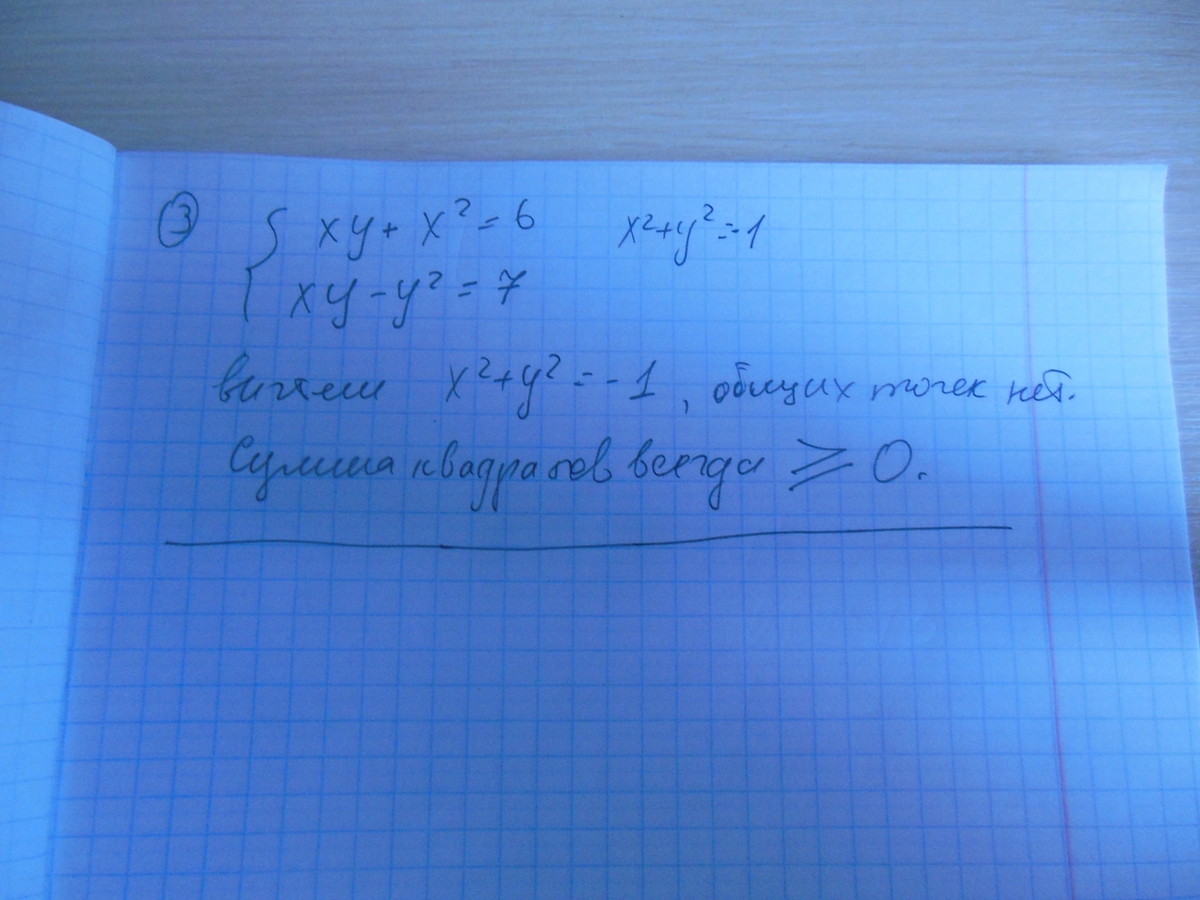 ③ { xy + x² = 6 x²+y²=-1
xy - y² = 7
вычтем x²+y² = -1, общих точек нет.
Сумма квадратов всегда ⩾ 0.